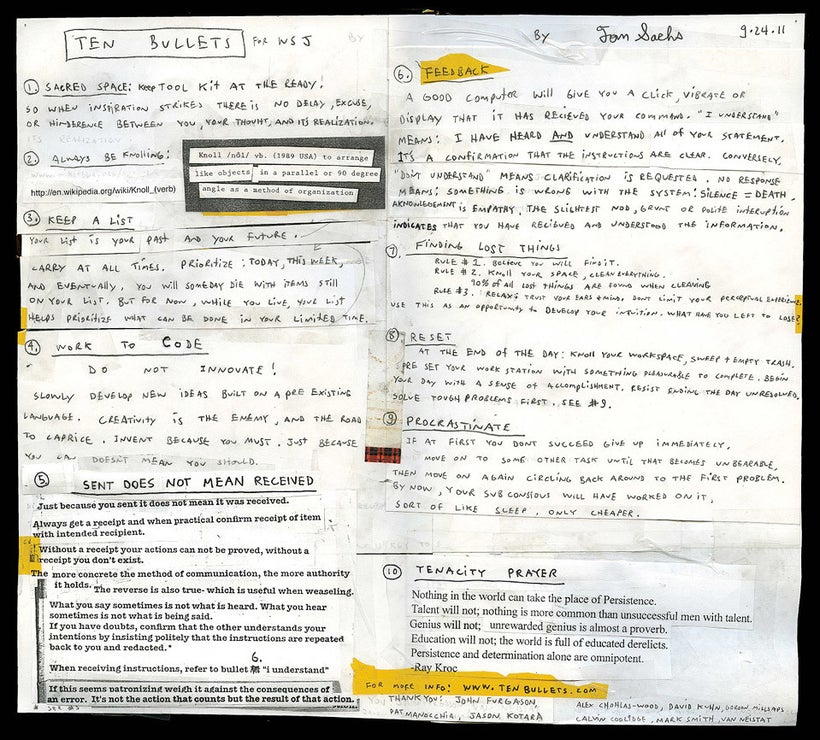 TEN BULLETS FOR WSJ
1. SACRED SPACE: Keep TOOL KIT AT THE READY!
SO WHEN INSPIRATION STRIKES THERE IS NO DELAY, EXCUSE,
OR HINDERENCE BETWEEN YOU, YOUR THOUHT, AND ITS REALIZATION.
2. ALWAYS BE KNOLLING:
http://en.wikipedia.org/wiki/Knoll_(verb)
Knoll /nōl/ vb. (1989 USA) to arrange
like objects in a parallel or 90 degree
angle as a method of organization
3. KEEP A LIST
YOUR LIST IS YOUR PAST AND YOUR FUTURE.
CARRY AT ALL TIMES. PRIORITIZE: TODAY, THIS WEEK,
AND EVENTUALLY. YOU WILL SOMEDAY DIE WITH ITEMS STILL
ON YOUR LIST. BUT FOR NOW, WHILE YOU LIVE, YOUR LIST
HELPS PRIORITIZE WHAT CAN BE DONE IN YOUR LIMITED TIME.
4. WORK TO CODE
DO NOT INNOVATE!
SLOWLY DEVELOP NEW IDEAS BUILT ON A PRE EXISTING
LANGUAGE. CREATIVITY IS THE ENEMY, AND THE ROAD
TO CAPRICE. INVENT BECAUSE YOU MUST. JUST BECAUSE
YOU CAN DOESNT MEAN YOU SHOULD.
5. SENT DOES NOT MEAN RECEIVED
Just because you sent it does not mean it was received.
Always get a receipt and when practical confirm receipt of item
with intended recipient.
Without a receipt your actions can not be proved, without a
receipt you don't exist.
The more concrete the method of communication, the more authority
it holds.
The reverse is also true- which is useful when weaseling.
What you say sometimes is not what is heard. What you hear
sometimes is not what is being said.
If you have doubts, confirm that the other understands your
intentions by insisting politely that the instructions are repeated
back to you and redacted.*
When receiving instructions, refer to bullet 6. "i understand"
If this seems patronizing weigh it against the consequences of
an error. It's not the action that counts but the result of that action.
BY Tom Sachs 9.24.11
6. FEEDBACK
A GOOD COMPUTOR WILL GIVE YOU A CLICK, VIBRATE OR
DISPLAY THAT IT HAS RECIEVED YOUR COMMAND. "I UNDERSTAND"
MEANS: I HAVE HEARD AND UNDERSTAND ALL OF YOUR STATEMENT.
ITS A CONFIRMATION THAT THE INSTRUCTIONS ARE CLEAR. CONVERSELY,
"DON'T UNDERSTAND" MEANS CLARIFICATION IS REQUESTED. NO RESPONSE
MEANS: SOMETHING IS WRONG WITH THE SYSTEM: SILENCE = DEATH.
AKNOWLEDGEMENT IS EMPATHY. THE SLIGHTEST NOD, GRUNT OR POLITE INTERUPTION
INDICATES THAT YOU HAVE RECIEVED AND UNDERSTOOD THE INFORMATION.
7. FINDING LOST THINGS
RULE #1. BELIEVE YOU WILL FIND IT.
RULE #2. KNOLL YOUR SPACE, CLEAN EVERYTHING.
90% OF ALL LOST THINGS ARE FOUND WHEN CLEANING
RULE #3. RELAX: TRUST YOUR EARS + MIND. DONT LIMIT YOUR PERCEPTUAL EXPERIENCE.
USE THIS AS AN OPPORTUNITY TO DEVELOP YOUR INTUITION. WHAT HAVE YOU LEFT TO LOSE?
8. RESET
AT THE END OF THE DAY: KNOLL YOUR WORKSPACE, SWEEP + EMPTY TRASH.
PRE SET YOUR WORK STATION WITH SOMETHING PLEASURABLE TO COMPLETE. BEGIN
YOUR DAY WITH A SENSE OF ACCOMPLISHMENT. RESIST ENDING THE DAY UNRESOLVED.
SOLVE TOUGH PROBLEMS FIRST. SEE #9.
9. PROCRASTINATE
IF AT FIRST YOU DONT SUCCEED GIVE UP IMMEDIATELY,
MOVE ON TO SOME OTHER TASK UNTIL THAT BECOMES UNBEARABLE,
THEN MOVE ON AGAIN CIRCLING BACK AROUND TO THE FIRST PROBLEM.
BY NOW, YOUR SUB CONSIOUS WILL HAVE WORKED ON IT,
SORT OF LIKE SLEEP, ONLY CHEAPER.
10 TENACITY PRAYER
Nothing in the world can take the place of Persistence.
Talent will not; nothing is more common than unsuccessful men with talent.
Genius will not; unrewarded genius is almost a proverb.
Education will not; the world is full of educated derelicts.
Persistence and determination alone are omnipotent.
-Ray Kroc
FOR MORE INFO: WWW.TENBULLETS.COM
THANK YOU: JOHN FURGASON,
PAT MANOCCHIA, JASON KOTARA
ALEX CHOHLAS-WOOD, DAVID KUHN, GORDON MILLSAPS
CALVIN COOLIDGE, MARK SMITH, VAN NEISTAT